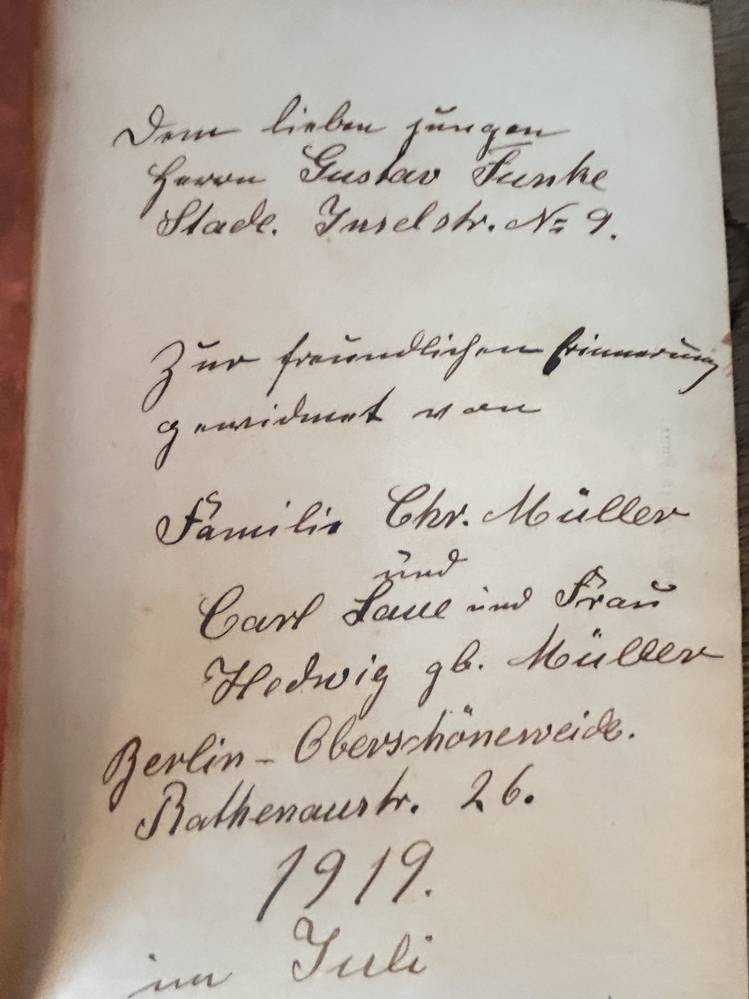 Dem lieben jungen
Herrn Gustav Funke
Stade. Inselstr. № 9.
Zur freundlichen Erinnerung
gewidmet von
Familie Chr. Müller
und
Carl Laue und Frau
Hedwig gb. Müller
Berlin - Oberschöneweide.
Rathenaustr. 26.
1919.
im Juli